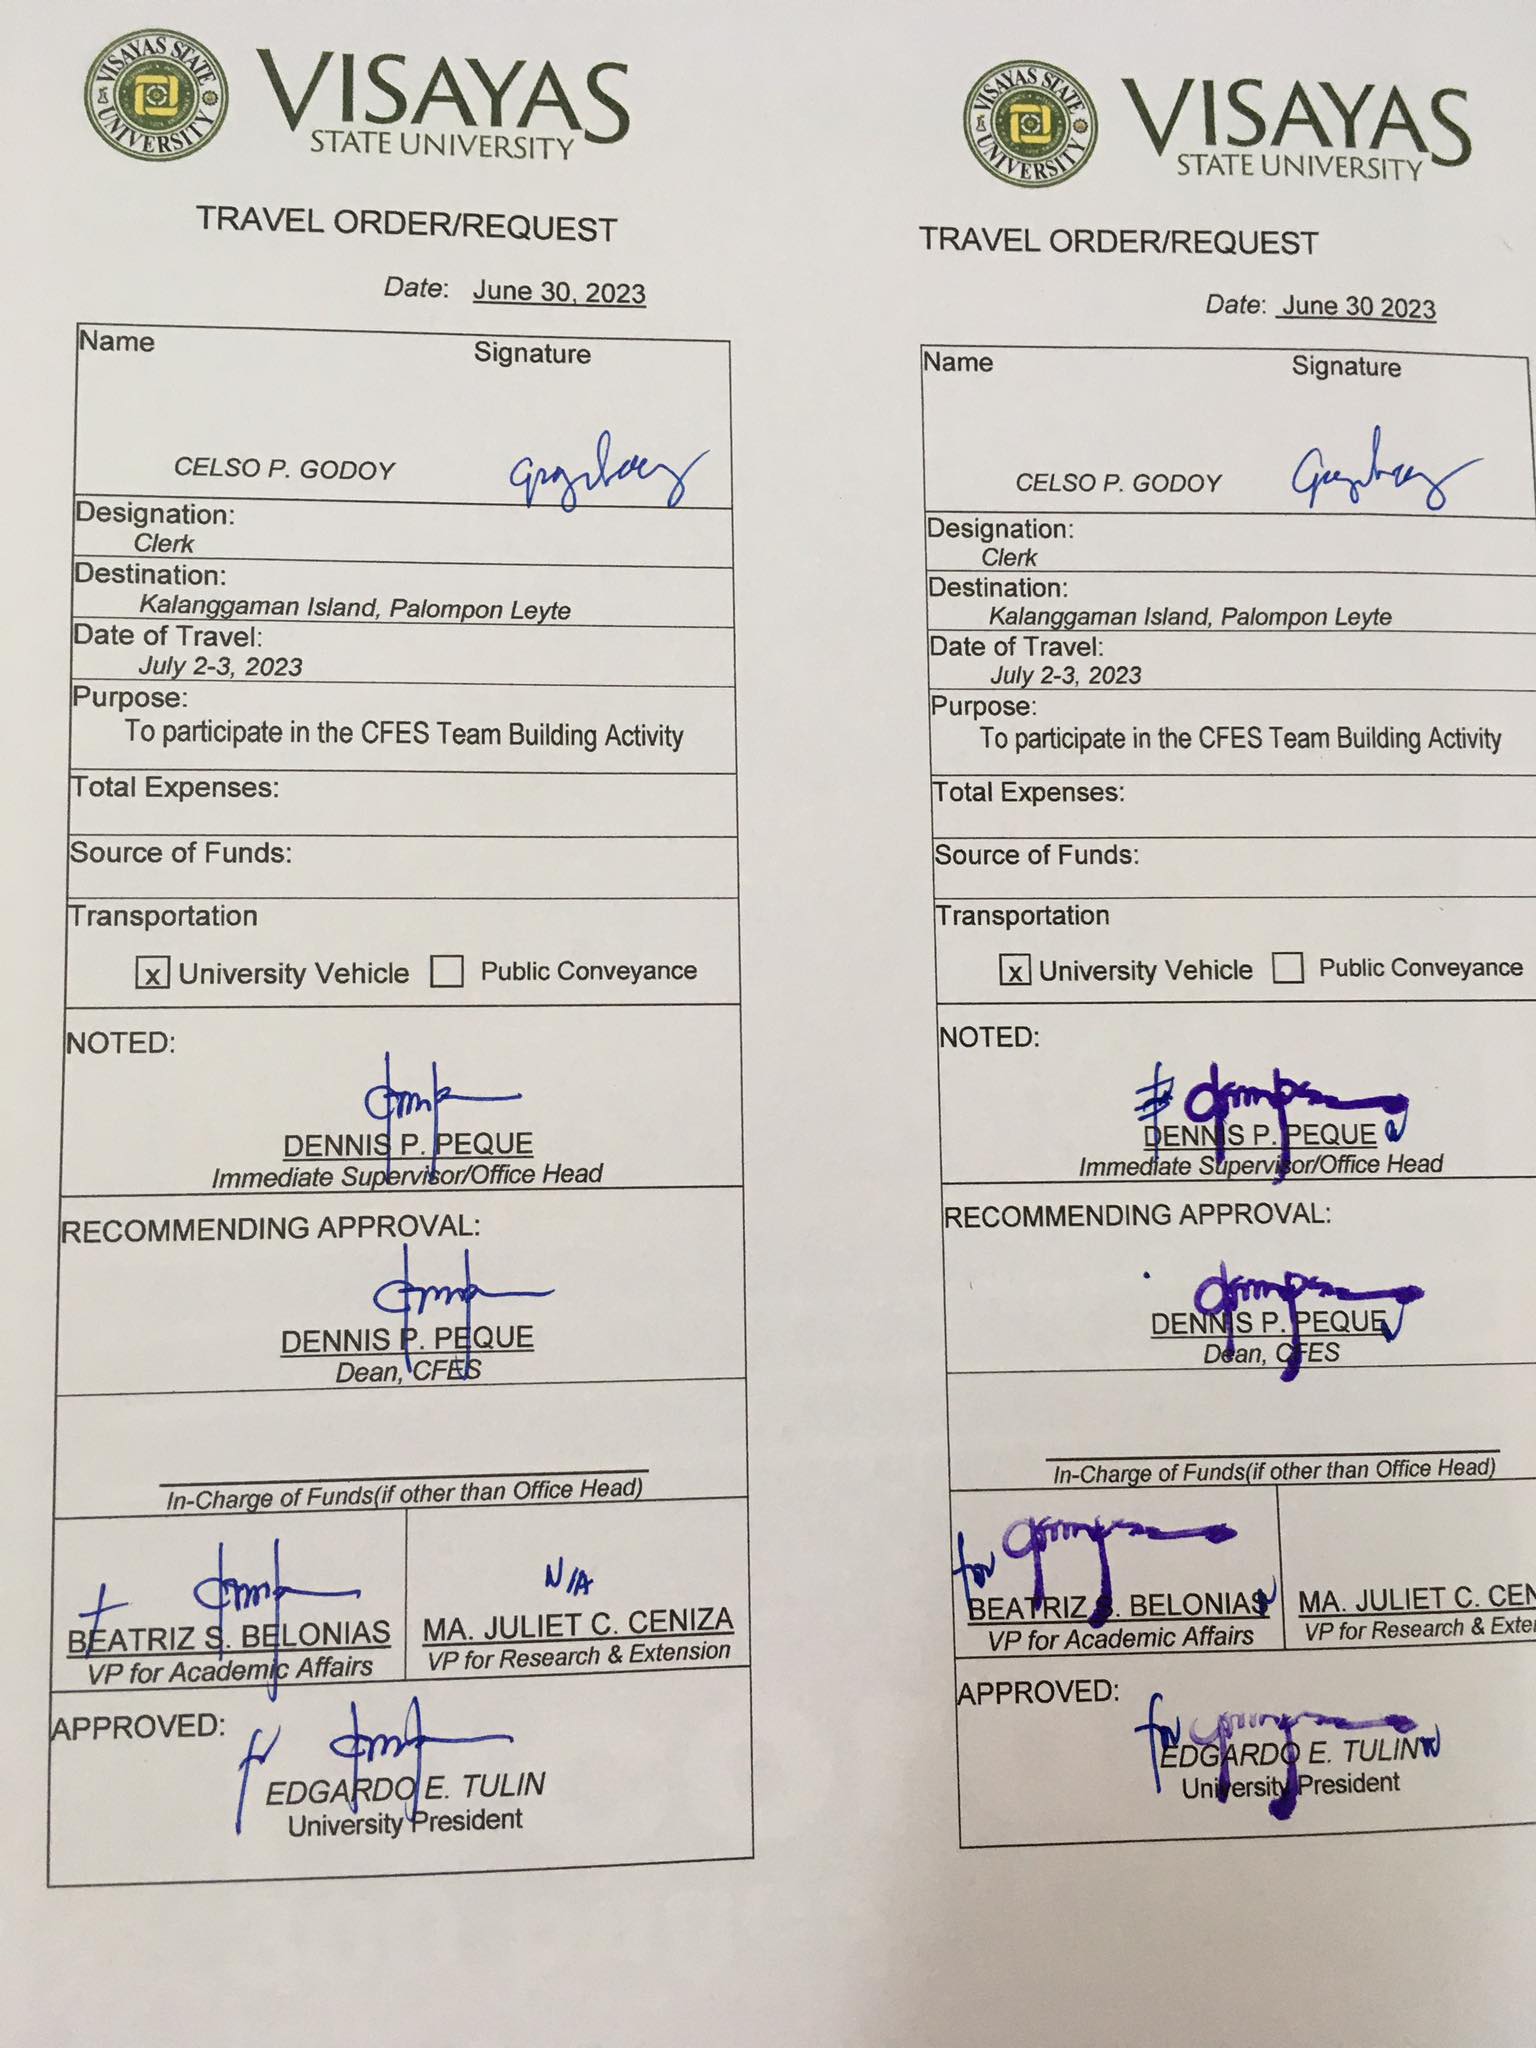 VISAYAS STATE UNIVERSITY
VISAYAS
STATE UNIVERSITY
TRAVEL ORDER/REQUEST
Date: June 30, 2023
Name Signature
CELSO P. GODOY
Designation:
Clerk
Destination:
Kalanggaman Island, Palompon Leyte
Date of Travel:
July 2-3, 2023
Purpose:
To participate in the CFES Team Building Activity
Total Expenses:
Source of Funds:
Transportation
x University Vehicle Public Conveyance
NOTED:
DENNIS P. PEQUE
Immediate Supervisor/Office Head
RECOMMENDING APPROVAL:
DENNIS P. PEQUE
Dean, CFES
In-Charge of Funds(if other than Office Head)
N/A
BEATRIZ S. BELONIAS MA. JULIET C. CENIZA
VP for Academic Affairs VP for Research & Extension
APPROVED:
for
EDGARDO E. TULIN
University President
VISAYAS STATE UNIVERSITY
VISAYAS
STATE UNIVERSITY
TRAVEL ORDER/REQUEST
Date: June 30 2023
Name Signature
CELSO P. GODOY
Designation:
Clerk
Destination:
Kalanggaman Island, Palompon Leyte
Date of Travel:
July 2-3, 2023
Purpose:
To participate in the CFES Team Building Activity
Total Expenses:
Source of Funds:
Transportation
x University Vehicle Public Conveyance
NOTED:
DENNIS P. PEQUE
Immediate Supervisor/Office Head
RECOMMENDING APPROVAL:
DENNIS P. PEQUE
Dean, CFES
In-Charge of Funds(if other than Office Head)
for
BEATRIZ S. BELONIAS MA. JULIET C. CEN
VP for Academic Affairs VP for Research & Exte
APPROVED:
for
EDGARDO E. TULIN
University President